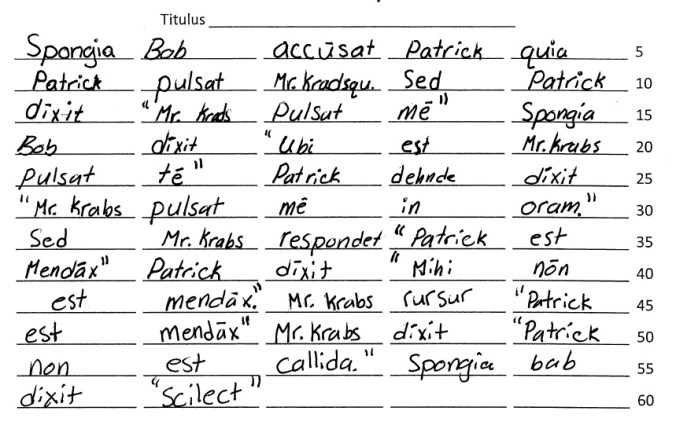 Titulus
Spongia Bob accūsat Patrick quia 5
Patrick pulsat Mr. Kradsqu. Sed Patrick 10
dīxit "Mr. Krads Pulsat mē" Spongia 15
Bob dīxit "Ubi est Mr. Krabs 20
pulsat tē" Patrick dehnde dīxit 25
"Mr. Krabs pulsat mē in oram." 30
Sed Mr. Krabs respondet "Patrick est 35
Mendāx" Patrick dīxit "Mihi nōn 40
est mendāx." Mr. Krabs rursur "Patrick 45
est mendāx" Mr. Krabs dīxit "Patrick 50
non est callida." Spongia bab 55
dīxit "Scilect" 60